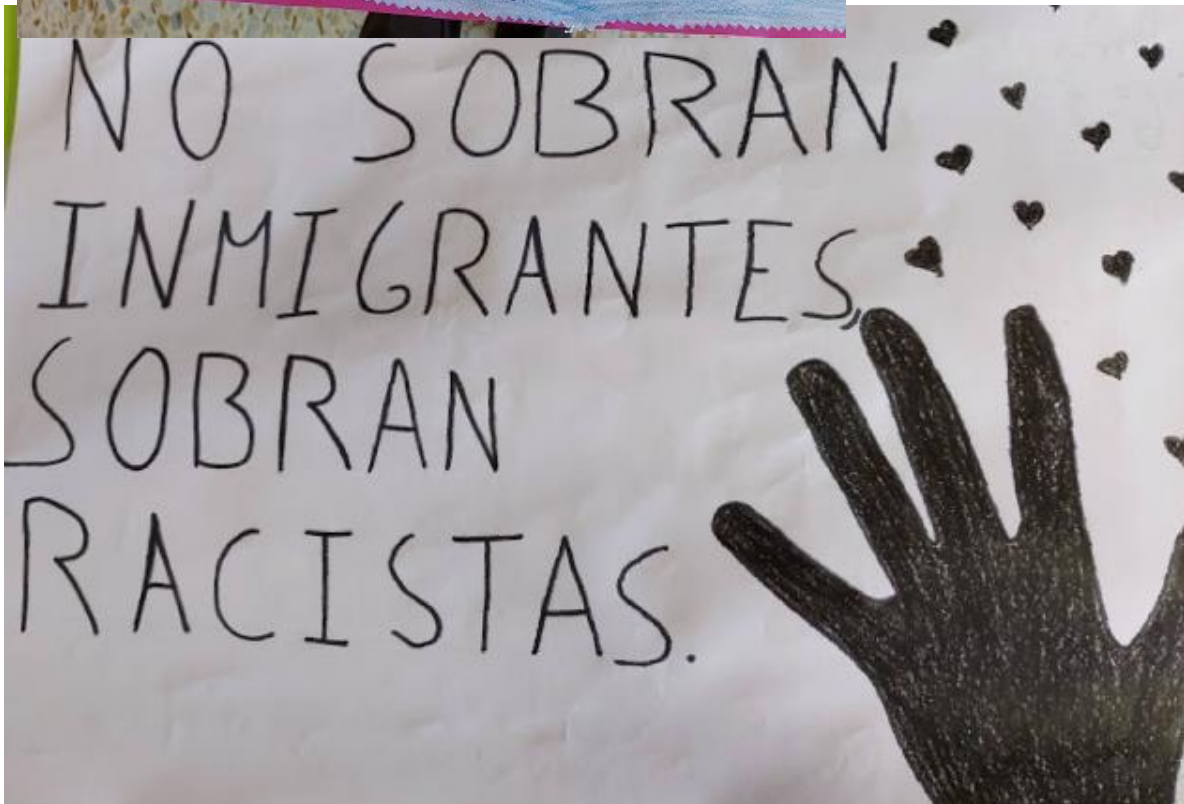 NO SOBRAN
INMIGRANTES,
SOBRAN
RACISTAS.